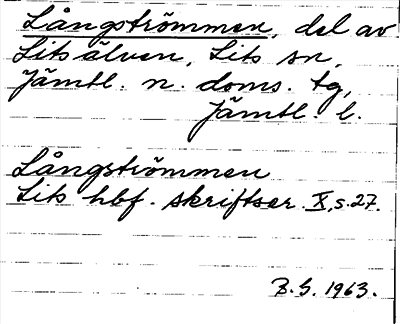 Långströmmen, del av
Litsälven, Lits sn,
Jämtl. n. doms. tg,
Jämtl. l.
Långströmmen
Lits hbf. skriftser. X, s. 27.
B. G. 1963.